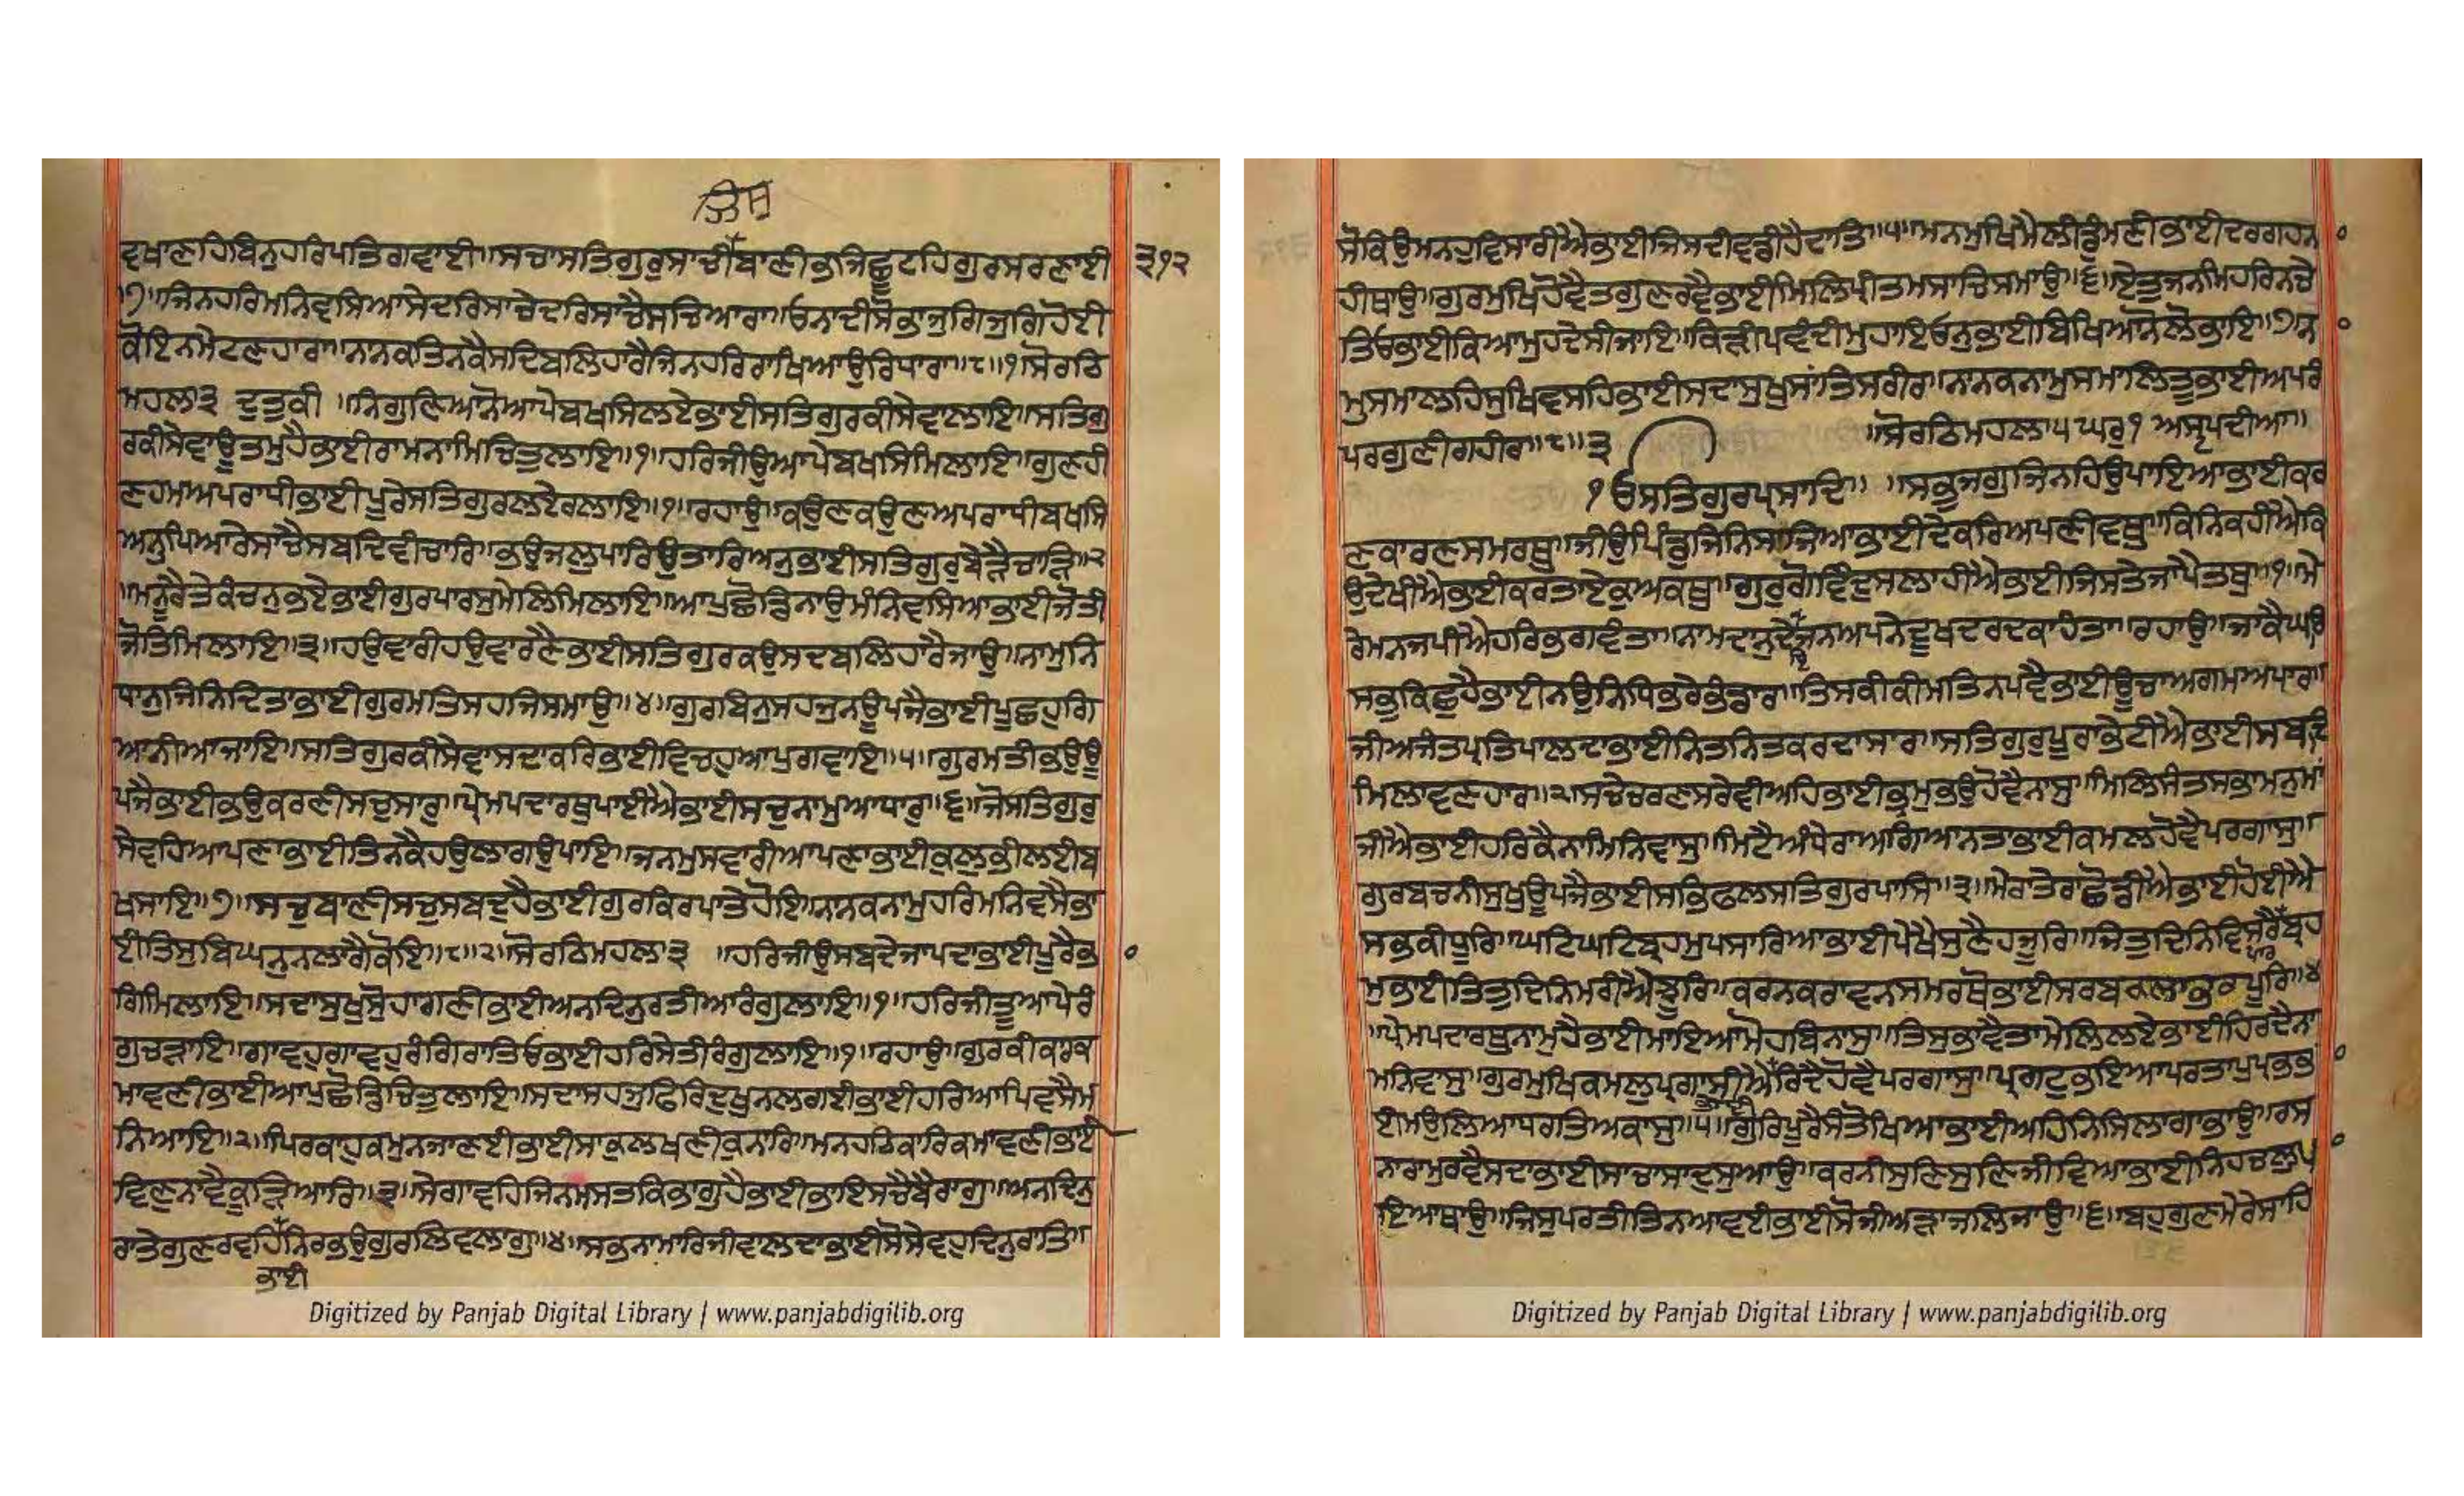 ਜਿਸ
ਵਖਾਣਹਿਬਿਨੁਹਰਿਪਤਿਗਵਾਈ॥ਸਚਾਸਤਿਗੁਰੁਸਾਚੀਬਾਣੀਭਜਿਛੂਟਹਿਗੁਰਸਰਣਾਈ ੩੧੨
॥੭॥ਜਿਨਹਰਿਮਨਿਵਸਿਆਸੇਦਰਿਸਾਚੇਦਰਿਸਾਚੈਸਚਿਆਰਾ॥ਓਨਾਦੀਸੋਭਾਜੁਗਿਜੁਗਿਹੋਈ
ਕੋਇਨਮੇਟਣਹਾਰਾ॥ਨਾਨਕਤਿਨਕੈਸਦਿਬਲਿਹਾਰੈਜਿਨਹਰਿਰਾਖਿਆਉਰਿਧਾਰਾ॥੮॥੧॥ਸੋਰਠਿ
ਮਹਲਾ੩ ਦੁਤੁਕੀ ॥ਨਿਗੁਣਿਆਨੋਆਪੇਬਖਸਿਲਏਭਾਈਸਤਿਗੁਰਕੀਸੇਵਾਲਾਇ॥ਸਤਿਗੁ
ਰਕੀਸੇਵਾਊਤਮੁਹੈਭਾਈਰਾਮਨਾਮਿਚਿਤੁਲਾਇ॥੧॥ਹਰਿਜੀਉਆਪੇਬਖਸਿਮਿਲਾਇ॥ਗੁਣਹੀ
ਣਹਮਅਪਰਾਧੀਭਾਈਪੂਰੇਸਤਿਗੁਰਲਏਰਲਾਇ॥੧॥ਰਹਾਉ॥ਕਉਣਕਉਣਅਪਰਾਧੀਬਖਸਿ
ਅਨੁਪਿਆਰੇਸਾਚੈਸਬਦਿਵੀਚਾਰਿ॥ਭਉਜਲੁਪਾਰਿਉਤਾਰਿਅਨੁਭਾਈਸਤਿਗੁਰਬੇੜੈਚਾੜਿ॥੨
॥ਮਨੂਰੈਤੇਕੰਚਨਭਏਭਾਈਗੁਰਪਾਰਸੁਮੇਲਿਮਿਲਾਇ॥ਆਪੁਛੋਡਿਨਾਉਮੰਨਿਵਸਿਆਭਾਈਜੋਤੀ
ਜੋਤਿਮਿਲਾਇ॥੩॥ਹਉਵਾਰੀਹਉਵਾਰਣੈਭਾਈਸਤਿਗੁਰਕਉਸਦਬਲਿਹਾਰੈਜਾਉ॥ਨਾਮੁਨਿ
ਧਾਨੁਜਿਨਿਦਿਤਾਭਾਈਗੁਰਮਤਿਸਹਜਿਸਮਾਉ॥੪॥ਗੁਰਬਿਨੁਸਹਜੁਨਊਪਜੈਭਾਈਪੂਛਹੁਗਿ
ਆਨੀਆਜਾਇ॥ਸਤਿਗੁਰਕੀਸੇਵਾਸਦਾਕਰਿਭਾਈਵਿਚਹੁਆਪੁਗਵਾਇ॥੫॥ਗੁਰਮਤੀਭਉਊ
ਪਜੈਭਾਈਭਉਕਰਣੀਸਚੁਸਾਰੁ॥ਪ੍ਰੇਮਪਦਾਰਥੁਪਾਈਐਭਾਈਸਚੁਨਾਮੁਆਧਾਰੁ॥੬॥ਜੋਸਤਿਗੁਰੁ
ਸੇਵਹਿਆਪਣਾਭਾਈਤਿਨਕੈਹਉਲਾਗਉਪਾਇ॥ਜਨਮੁਸਵਾਰੀਆਪਣਾਭਾਈਕੁਲੁਭੀਲਈਬ
ਖਸਾਇ॥੭॥ਸਚੁਬਾਣੀਸਚੁਸਬਦੁਹੈਭਾਈਗੁਰਕਿਰਪਾਤੇਹੋਇ॥ਨਾਨਕਨਾਮੁਹਰਿਮਨਿਵਸੈਭਾ
ਈਤਿਸੁਬਿਘਨੁਨਲਾਗੈਕੋਇ॥੮॥੨॥ਸੋਰਠਿਮਹਲਾ੩ ॥ਹਰਿਜੀਉਸਬਦੇਜਾਪਦਾਭਾਈਪੂਰੈਭ
ਗਿਮਿਲਾਇ॥ਸਦਾਸੁਖੁਸੋਹਾਗਣੀਭਾਈਅਨਦਿਨੁਰਤੀਆਰੰਗੁਲਾਇ॥੧॥ਹਰਿਜੀਤੂਆਪੇਰੰ
ਗੁਚੜਾਇ॥ਗਾਵਹੁਗਾਵਹੁਰੰਗਿਰਾਤਿਓਭਾਈਹਰਿਸੇਤੀਰੰਗੁਲਾਇ॥੧॥ਰਹਾਉ॥ਗੁਰਕੀਕਾਰਕ
ਮਾਵਣੀਭਾਈਆਪੁਛੋਡਿਚਿਤੁਲਾਇ॥ਸਦਾਸਹਜੁਫਿਰਿਦੁਖੁਨਲਗਈਭਾਈਹਰਿਆਪਿਵਸੈਮ
ਨਿਆਇ॥੨॥ਪਿਰਕਾਹੁਕਮੁਨਜਾਣਈਭਾਈਸਾਕੁਲਖਣੀਕੁਨਾਰਿ॥ਮਨਹਠਿਕਾਰਕਮਾਵਣੀਭਾਈ
ਵਿਣੁਨਾਵੈਕੂੜਿਆਰਿ॥੩॥ਸੇਗਾਵਹਿਜਿਨਮਸਤਕਿਭਾਗੁਹੈਭਾਈਭਾਇਸਚੈਬੈਰਾਗੁ॥ਅਨਦਿਨੁ
ਰਾਤੇਗੁਣਰਵਹਿਨਿਰਭਉਗੁਰਲਿਵਲਾਗੁ॥੪॥ਸਭਨਾਮਾਰਿਜੀਵਾਲਦਾਭਾਈਸੋਸੇਵਹੁਦਿਨੁਰਾਤਿ॥
ਭਾਈ
Digitized by Panjab Digital Library | www.panjabdigilib.org
ਸੋਕਿਉਮਨਹੁਵਿਸਾਰੀਐਭਾਈਜਿਸਦੀਵਡੀਹੈਦਾਤਿ॥੫॥ਮਨਮੁਖਿਮੈਲੀਡੂੰਮਣੀਭਾਈਦਰਗਹਨ
ਹੀਥਾਉ॥ਗੁਰਮੁਖਿਹੋਵੈਤਗੁਣਰਵੈਭਾਈਮਿਲਿਪ੍ਰੀਤਮਸਾਚਿਸਮਾਉ॥੬॥ਏਤੁਜਨਮਿਹਰਿਨਚੇ
ਤਿਓਭਾਈਕਿਆਮੁਹੁਦੇਸੀਜਾਇ॥ਕਿੜੀਪਵੰਦੀਮੁਹਾਇਓਨੁਭਾਈਬਿਖਿਆਨੋਲੋਭਾਇ॥੭॥ਨ
ਮੁਸਮਾਲਹਿਸੁਖਿਵਸਹਿਭਾਈਸਦਾਸੁਖੁਸਾਂਤਿਸਰੀਰ॥ਨਾਨਕਨਾਮੁਸਮਾਲਿਤੂਭਾਈਅਪਰੰ
ਪਰਗੁਣੀਗਹੀਰ॥੮॥੩ ॥ਸੋਰਠਿਮਹਲਾ੫ਘਰੁ੧ ਅਸਟਪਦੀਆ॥
੧ਓਸਤਿਗੁਰਪ੍ਰਸਾਦਿ॥ ॥ਸਭੁਜਗੁਜਿਨਹਿਉਪਾਇਆਭਾਈਕਰ
ਣਕਾਰਣਸਮਰਥੁ॥ਜੀਉਪਿੰਡੁਜਿਨਿਸਾਜਿਆਭਾਈਦੇਕਰਿਅਪਣੀਵਥੁ॥ਕਿਨਿਕਹੀਐਕਿ
ਉਦੇਖੀਐਭਾਈਕਰਤਾਏਕੁਅਕਥੁ॥ਗੁਰੁਗੋਵਿੰਦੁਸਲਾਹੀਐਭਾਈਜਿਸਤੇਜਾਪੈਤਥੁ॥੧॥ਮੇ
ਰੇਮਨਜਪੀਐਹਰਿਭਗਵੰਤਾ॥ਨਾਮਦਾਨੁਦੇਜਨਅਪਨੇਦੂਖਦਰਦਕਾਹੰਤਾ॥ਰਹਾਉ॥ਜਾਕੈਘਰਿ
ਸਭੁਕਿਛੁਹੈਭਾਈਨਉਨਿਧਿਭਰੇਭੰਡਾਰ॥ਤਿਸਕੀਕੀਮਤਿਨਪਵੈਭਾਈਊਚਾਅਗਮਅਪਾਰ॥
ਜੀਅਜੰਤਪ੍ਰਤਿਪਾਲਦਾਭਾਈਨਿਤਨਿਤਕਰਦਾਸਾਰ॥ਸਤਿਗੁਰੁਪੂਰਾਭੇਟੀਐਭਾਈਸਬਦਿ
ਮਿਲਾਵਣਹਾਰ॥੨॥ਸਚੇਚਰਣਸਰੇਵੀਅਹਿਭਾਈਭ੍ਰਮੁਭਉਹੋਵੈਨਾਸੁ॥ਮਿਲਿਸੰਤਸਭਾਮਨੁਮਾਂ
ਜੀਐਭਾਈਹਰਿਕੈਨਾਮਿਨਿਵਾਸੁ॥ਮਿਟੈਅੰਧੇਰਾਅਗਿਆਨਤਾਭਾਈਕਮਲਹੋਵੈਪਰਗਾਸੁ॥
ਗੁਰਬਚਨੀਸੁਖੁਊਪਜੈਭਾਈਸਭਿਫਲਸਤਿਗੁਰਪਾਸਿ॥੩॥ਮੇਰਾਤੇਰਾਛੋਡੀਐਭਾਈਹੋਈਐ
ਸਭਕੀਧੂਰਿ॥ਘਟਿਘਟਿਬ੍ਰਹਮੁਪਸਾਰਿਆਭਾਈਪੇਖੈਸੁਣੈਹਜੂਰਿ॥ਜਿਤੁਦਿਨਿਵਿਸਰੈਬ੍ਰਹ
ਮੁਭਾਈਤਿਤੁਦਿਨਿਮਰੀਐਝੂਰਿ॥ਕਰਨਕਰਾਵਨਸਮਰਥੋਭਾਈਸਰਬਕਲਾਭਰਪੂਰਿ॥੪
॥ਪ੍ਰੇਮਪਦਾਰਥੁਨਾਮੁਹੈਭਾਈਮਾਇਆਮੋਹਬਿਨਾਸੁ॥ਤਿਸੁਭਾਵੈਤਾਮੇਲਿਲਏਭਾਈਹਿਰਦੈਨਾ
ਮਨਿਵਾਸੁ॥ਗੁਰਮੁਖਿਕਮਲੁਪ੍ਰਗਾਸੀਐਰਿਦੈਹੋਵੈਪਰਗਾਸੁ॥ਪ੍ਰਗਟੁਭਇਆਪਰਤਾਪੁਪ੍ਰਭਭ
ਈਮਉਲਿਆਧਰਤਿਅਕਾਸੁ॥੫॥ਗੁਰਿਪੂਰੈਸੰਤੋਖਿਆਭਾਈਅਹਿਨਿਸਿਲਾਗਾਭਾਉ॥ਰਸ
ਨਾਰਾਮੁਰਵੈਸਦਾਭਾਈਸਾਚਾਸਾਦੁਸੁਆਉ॥ਕਰਨੀਸੁਣਿਸੁਣਿਜੀਵਿਆਭਾਈਨਿਹਚਲੁਪ
ਇਆਥਾਉ॥ਜਿਸੁਪਰਤੀਤਿਨਆਵਈਭਾਈਸੋਜੀਅੜਾਜਲਿਜਾਉ॥੬॥ਬਹੁਗੁਣਮੇਰੇਸਾਹਿ
Digitized by Panjab Digital Library | www.panjabdigilib.org